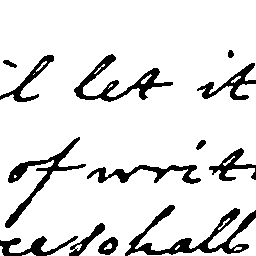 il let it
of writ
shall